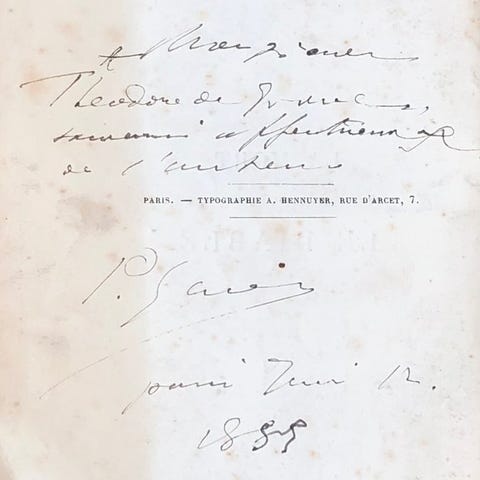 A Monsieur
Theodore de
souvenir affectueux
de l'auteur
PARIS. — TYPOGRAPHIE A. HENNUYER, RUE D'ARCET, 7.
P.
paris 12.
18